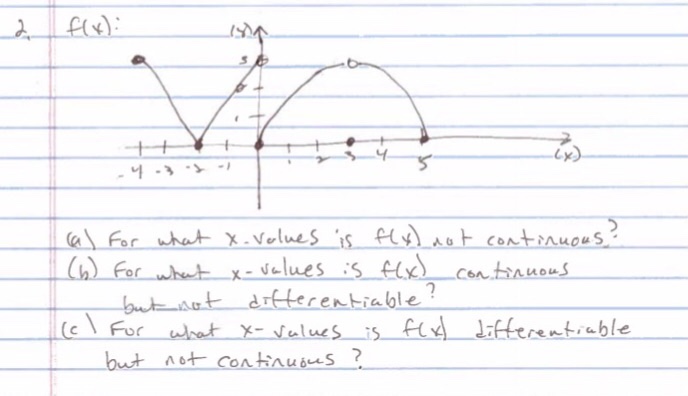 2. f(x):
(y)
3
1
-4 -3 -2 -1 1 2 3 4 5 (x)
(a) For what x-values is f(x) not continuous?
(b) For what x-values is f(x) continuous
but not differentiable?
(c) For what x-values is f(x) differentiable
but not continuous?